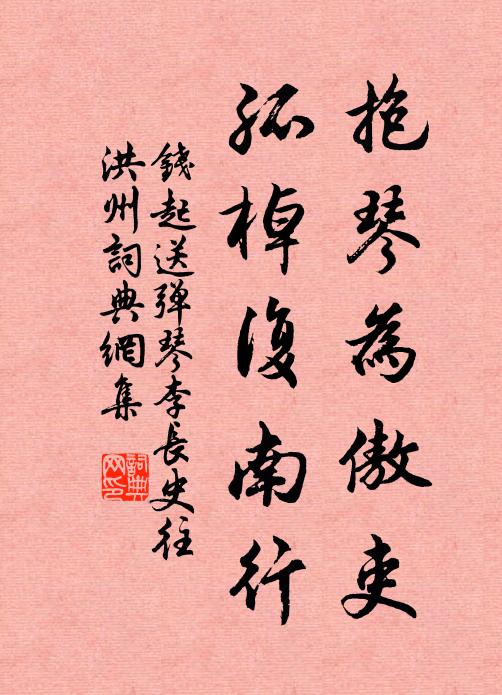 抱琴為傲吏
孤棹復南行
錢起送弹琴李長史往
洪州詞典網集
詞典网印